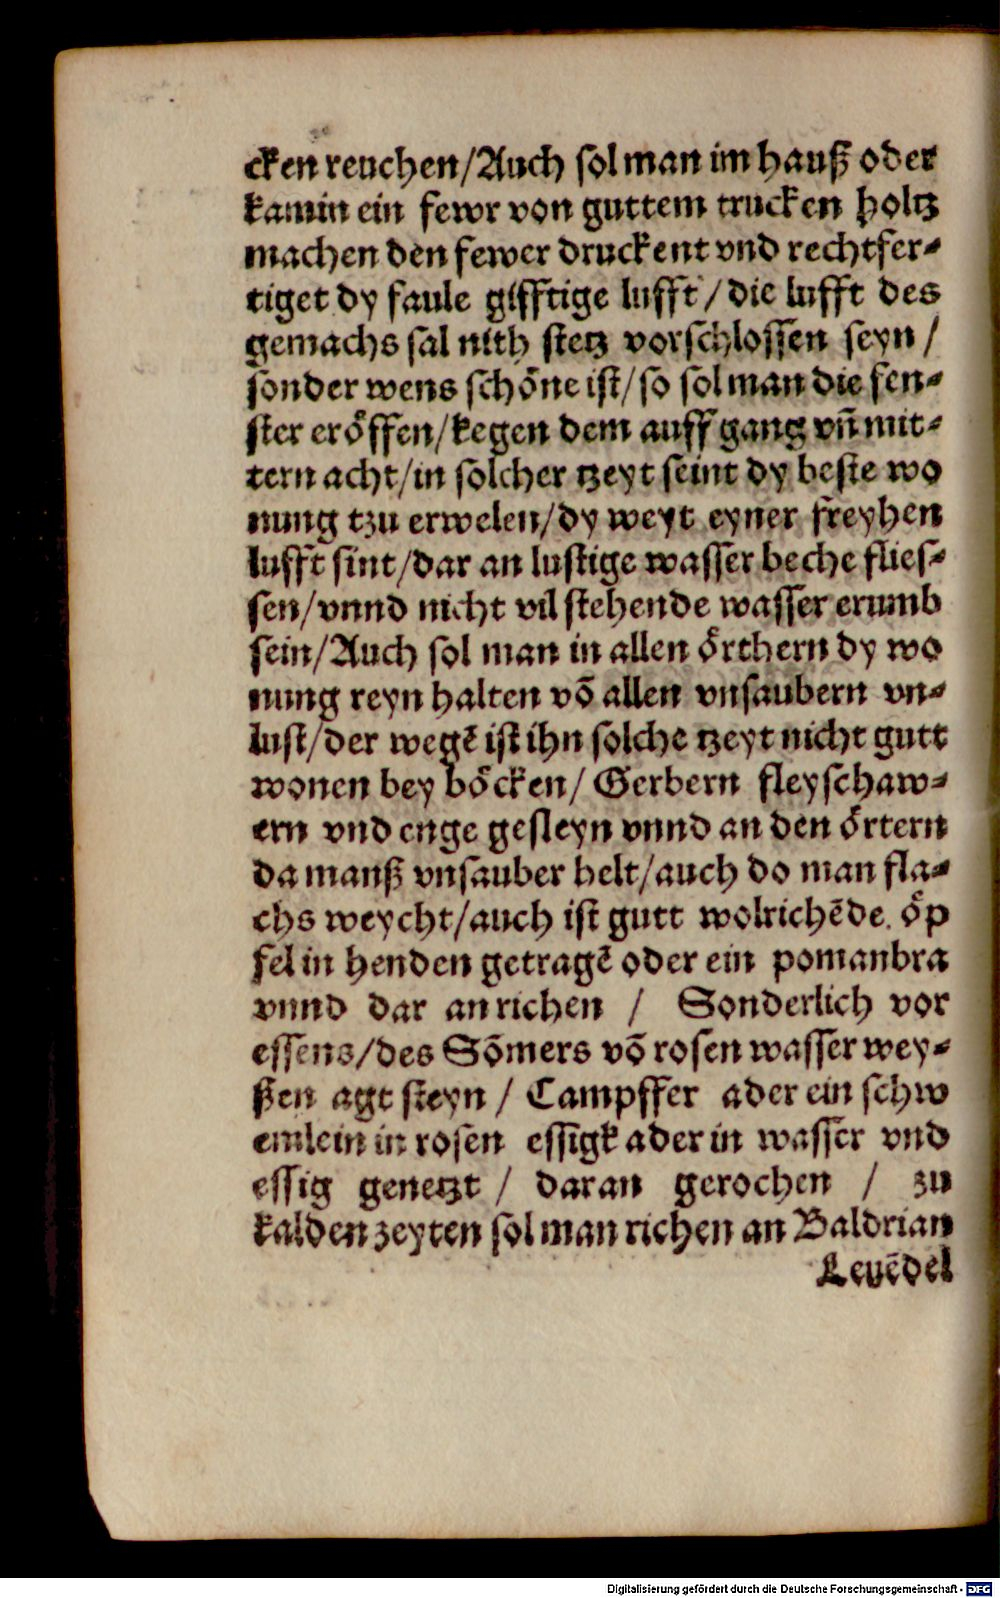 cken reuchen/Auch sol man im hauß oder
kamin ein fewr von guttem trucken holtz
machen den fewer druckent vnd rechtfer-
tiget dy faule gifftige lufft/die lufft des
gemachs sal nith stetz vorschlossen seyn/
sonder wens schöne ist/so sol man die fen-
ster eröffen/kegen dem auff gang vñ mit-
tern acht/in solcher tzeyt seint dy beste wo
nung tzu erwelen/dy weyt eyner freyhen
lufft sint/dar an lustige wasser beche flies-
sen/vnnd nicht vil stehende wasser erumb
sein/Auch sol man in allen örthern dy wo
nung reyn halten võ allen vnsaubern vn-
lust/der wegẽ ist ihn solche tzeyt nicht gutt
wonen bey böcken/ Gerbern fleyschaw-
ern vnd enge gesleyn vnnd an den örtern
da manß vnsauber helt/auch do man fla-
chs weycht/auch ist gutt wolrichẽde. öp
fel in henden getragẽ oder ein pomanbra
vnnd dar an richen / Sonderlich vor
essens/des Sõmers võ rosen wasser wey-
ßen agt steyn / Campffer ader ein schw
emlein in rosen essigk ader in wasser vnd
essig genetzt / daran gerochen / zu
kalden zeyten sol man richen an Baldrian
Leuẽdel
Digitalisierung gefördert durch die Deutsche Forschungsgemeinschaft - DFG